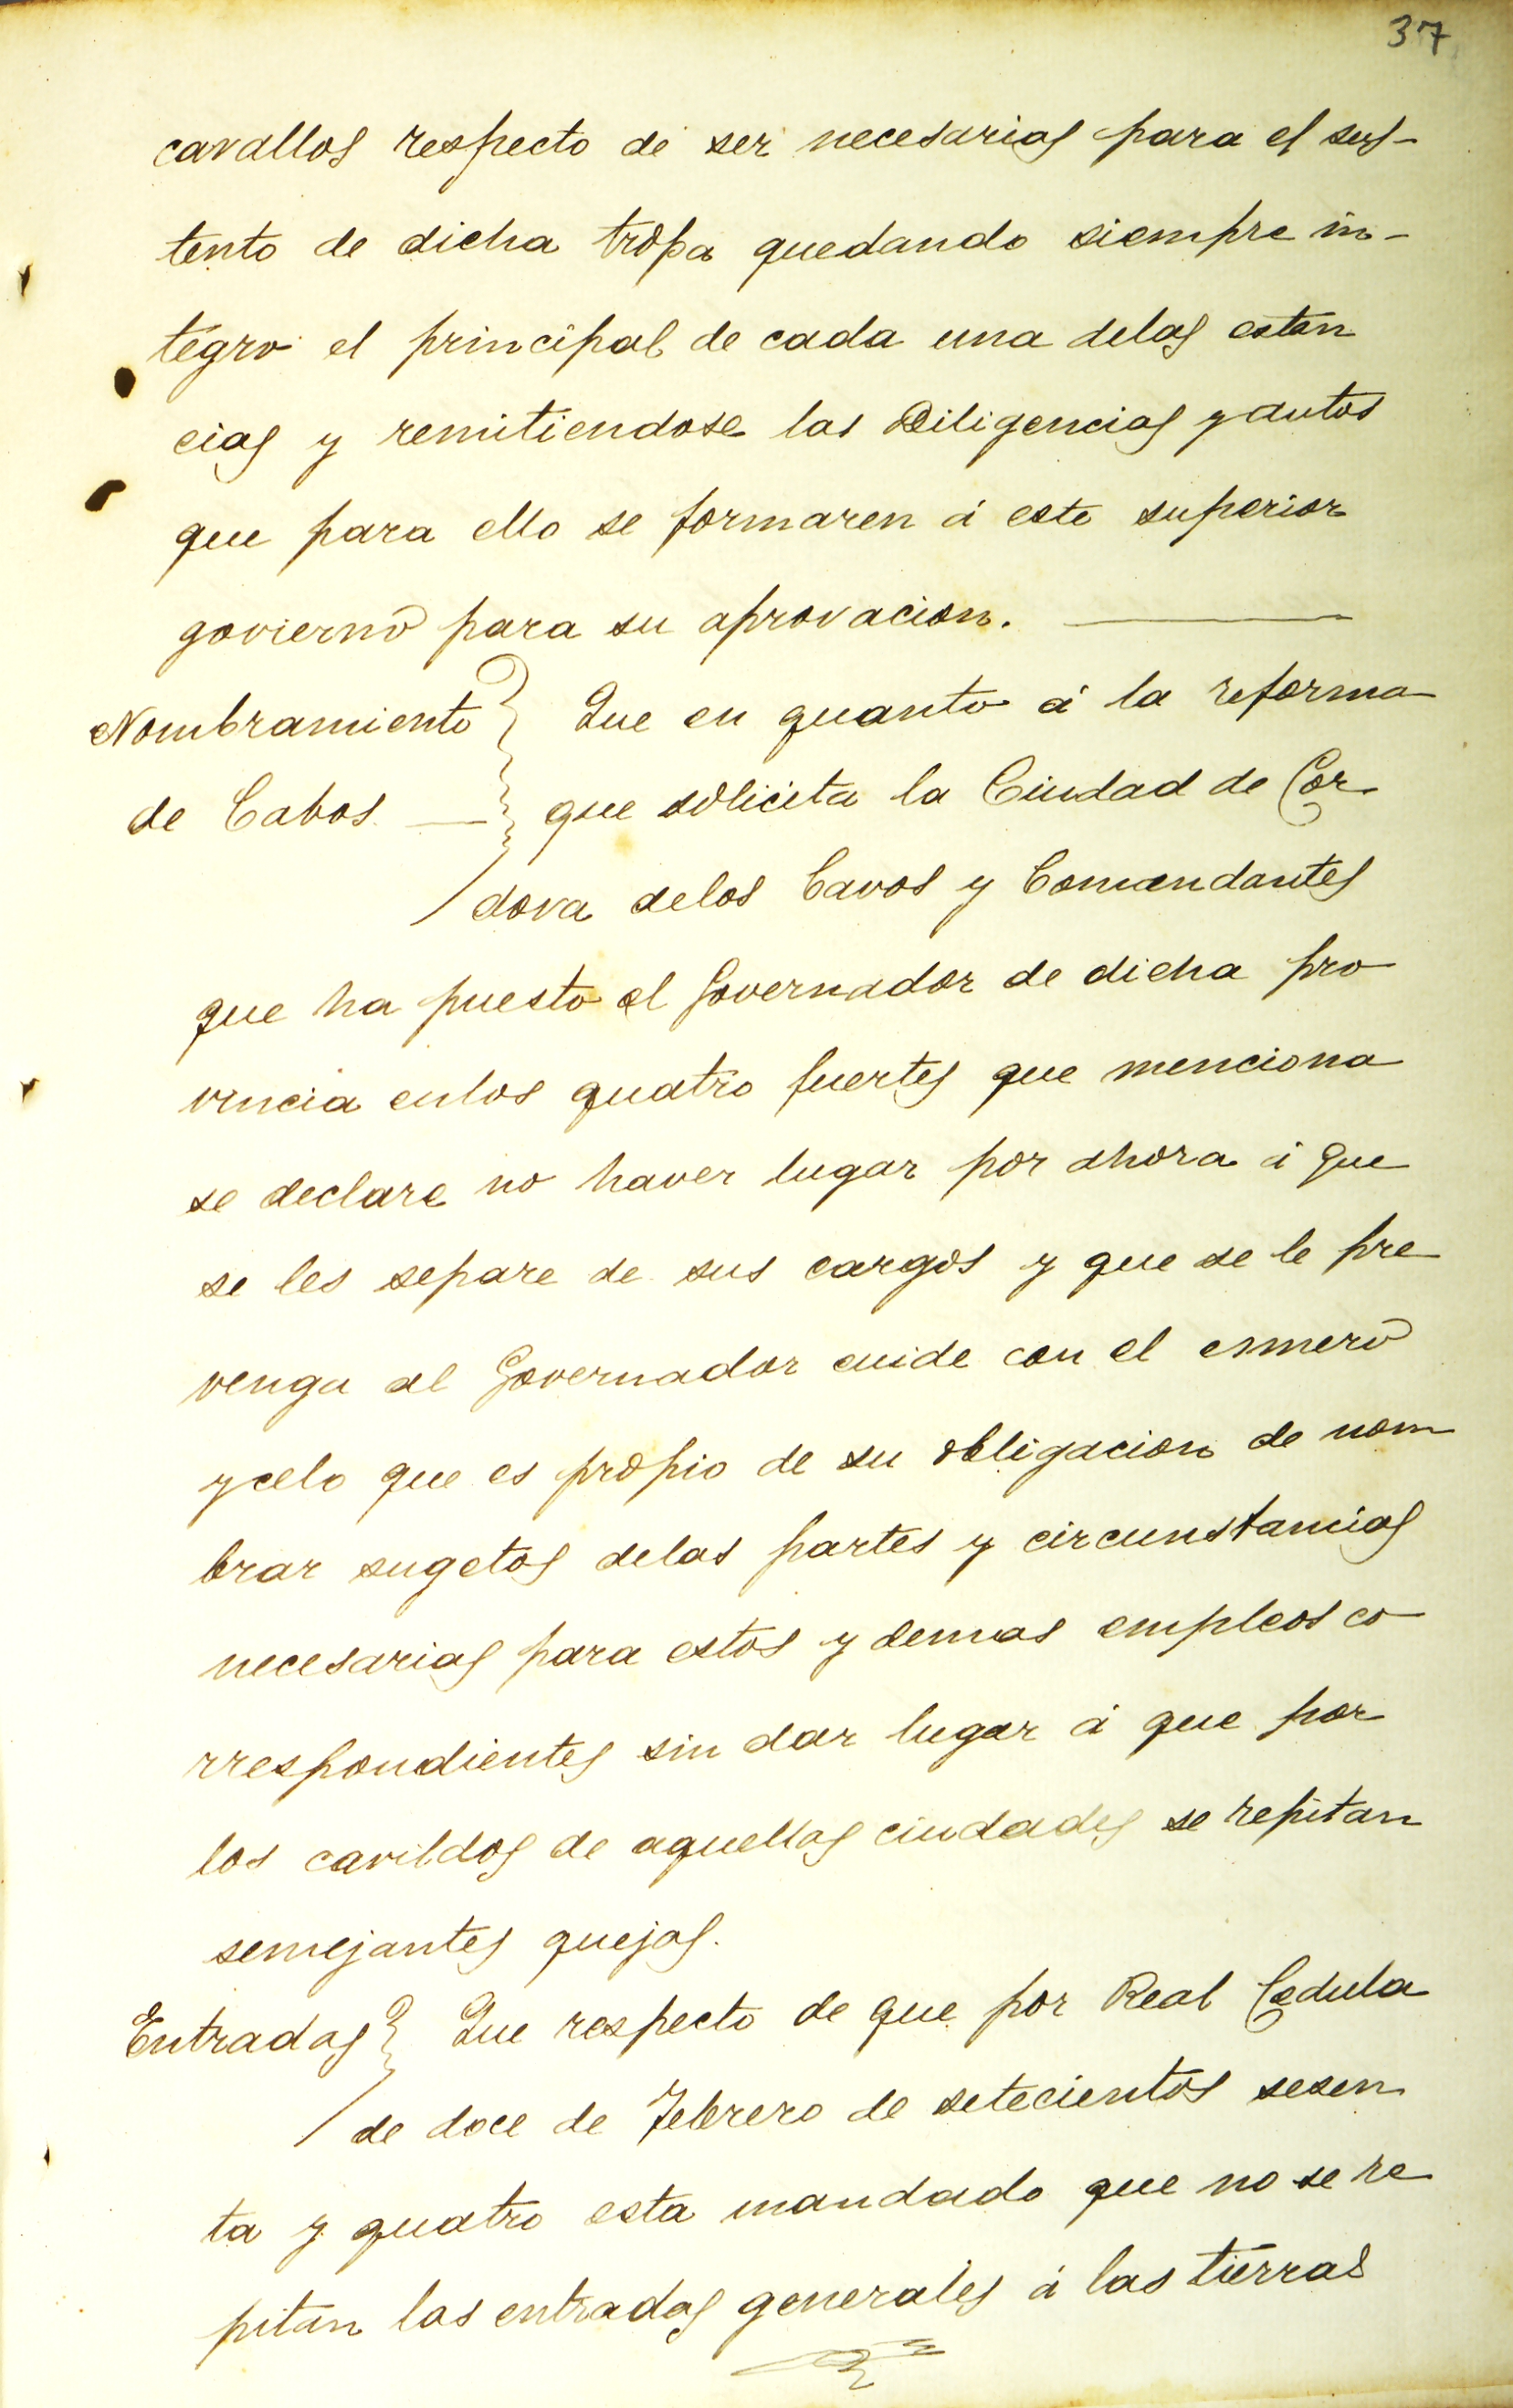 37
cavallos respecto de ser necesarias para el sus-
tento de dicha tropa quedando siempre in-
tegro el principal de cada una delas estan
cias y remitiendose las Diligencias y autos
que para ello se formaren á este superior
govierno para su aprovacion.
Nombramiento de Cabos
Que en quanto á la reforma
que solicita la Ciudad de Cor
dova delos Cavos y Comandantes
que ha puesto el Governador de dicha pro
vincia enlos quatro fuertes que menciona
se declare no haver lugar por ahora á que
se les separe de sus cargos y que se le pre
venga al Governador cuide con el esmero
y celo que es propio de su obligacion de nom
brar sugetos delas partes y circunstancias
necesarias para estos y demas empleos co
rrespondientes sin dar lugar á que por
los cavildos de aquellas ciudades se repitan
semejantes quejas.
Entradas
Que respecto de que por Real Cedula
de doce de Febrero de setecientos sesen
ta y quatro esta mandado que no se re
pitan las entradas generales á las tierras